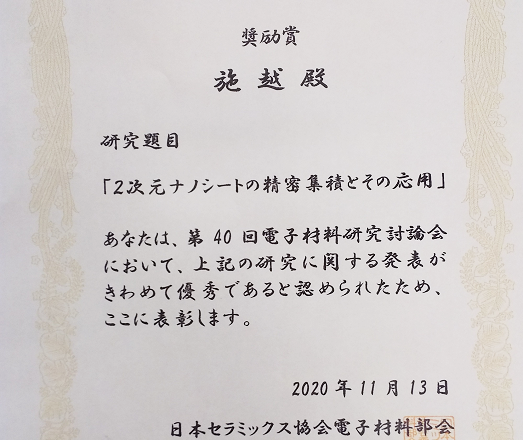 奨励賞
施越殿
研究題目
「2次元ナノシートの精密集積とその応用」
あなたは、第40回電子材料研究討論会
において、上記の研究に関する発表が
きわめて優秀であると認められたため、
ここに表彰します。
2020年11月13日
日本セラミックス協会電子材料部会